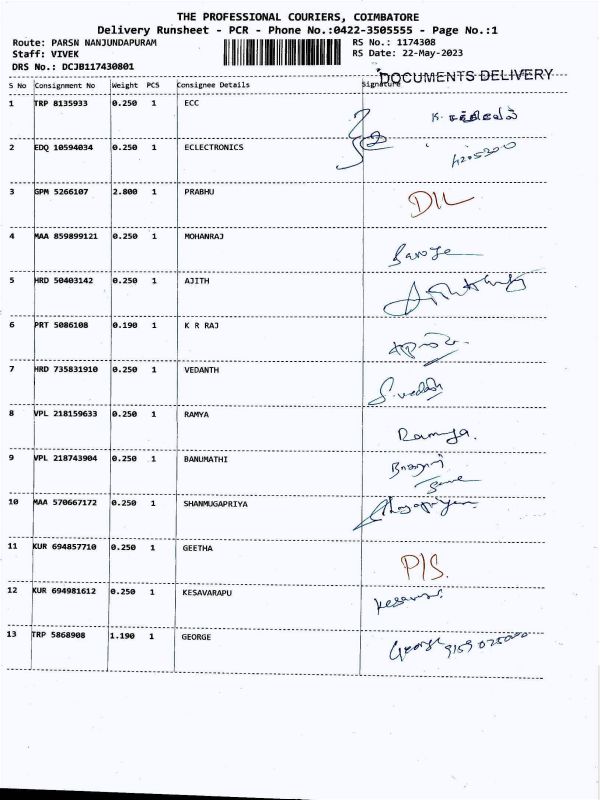 THE PROFESSIONAL COURIERS, COIMBATORE
Delivery Runsheet - PCR - Phone No.:0422-3505555 - Page No.:1
Route: PARSN NANJUNDAPURAM RS No.: 1174308
Staff: VIVEK RS Date: 22-May-2023
DRS No.: DCJB117430801
DOCUMENTS DELIVERY
S No Consignment No Weight PCS Consignee Details Signature
1 TRP 8135933 0.250 1 ECC K.
2 EDQ 10594034 0.250 1 ECLECTRONICS
3 GPM 5266107 2.800 1 PRABHU D/L
4 MAA 859899121 0.250 1 MOHANRAJ
5 HRD 50403142 0.250 1 AJITH
6 PRT 5086108 0.190 1 K R RAJ
7 HRD 735831910 0.250 1 VEDANTH S.vedanth
8 VPL 218159633 0.250 1 RAMYA Ramya.
9 VPL 218743904 0.250 1 BANUMATHI
10 MAA 570667172 0.250 1 SHANMUGAPRIYA
11 KUR 694857710 0.250 1 GEETHA P/S.
12 KUR 694981612 0.250 1 KESAVARAPU
13 TRP 5868908 1.190 1 GEORGE George